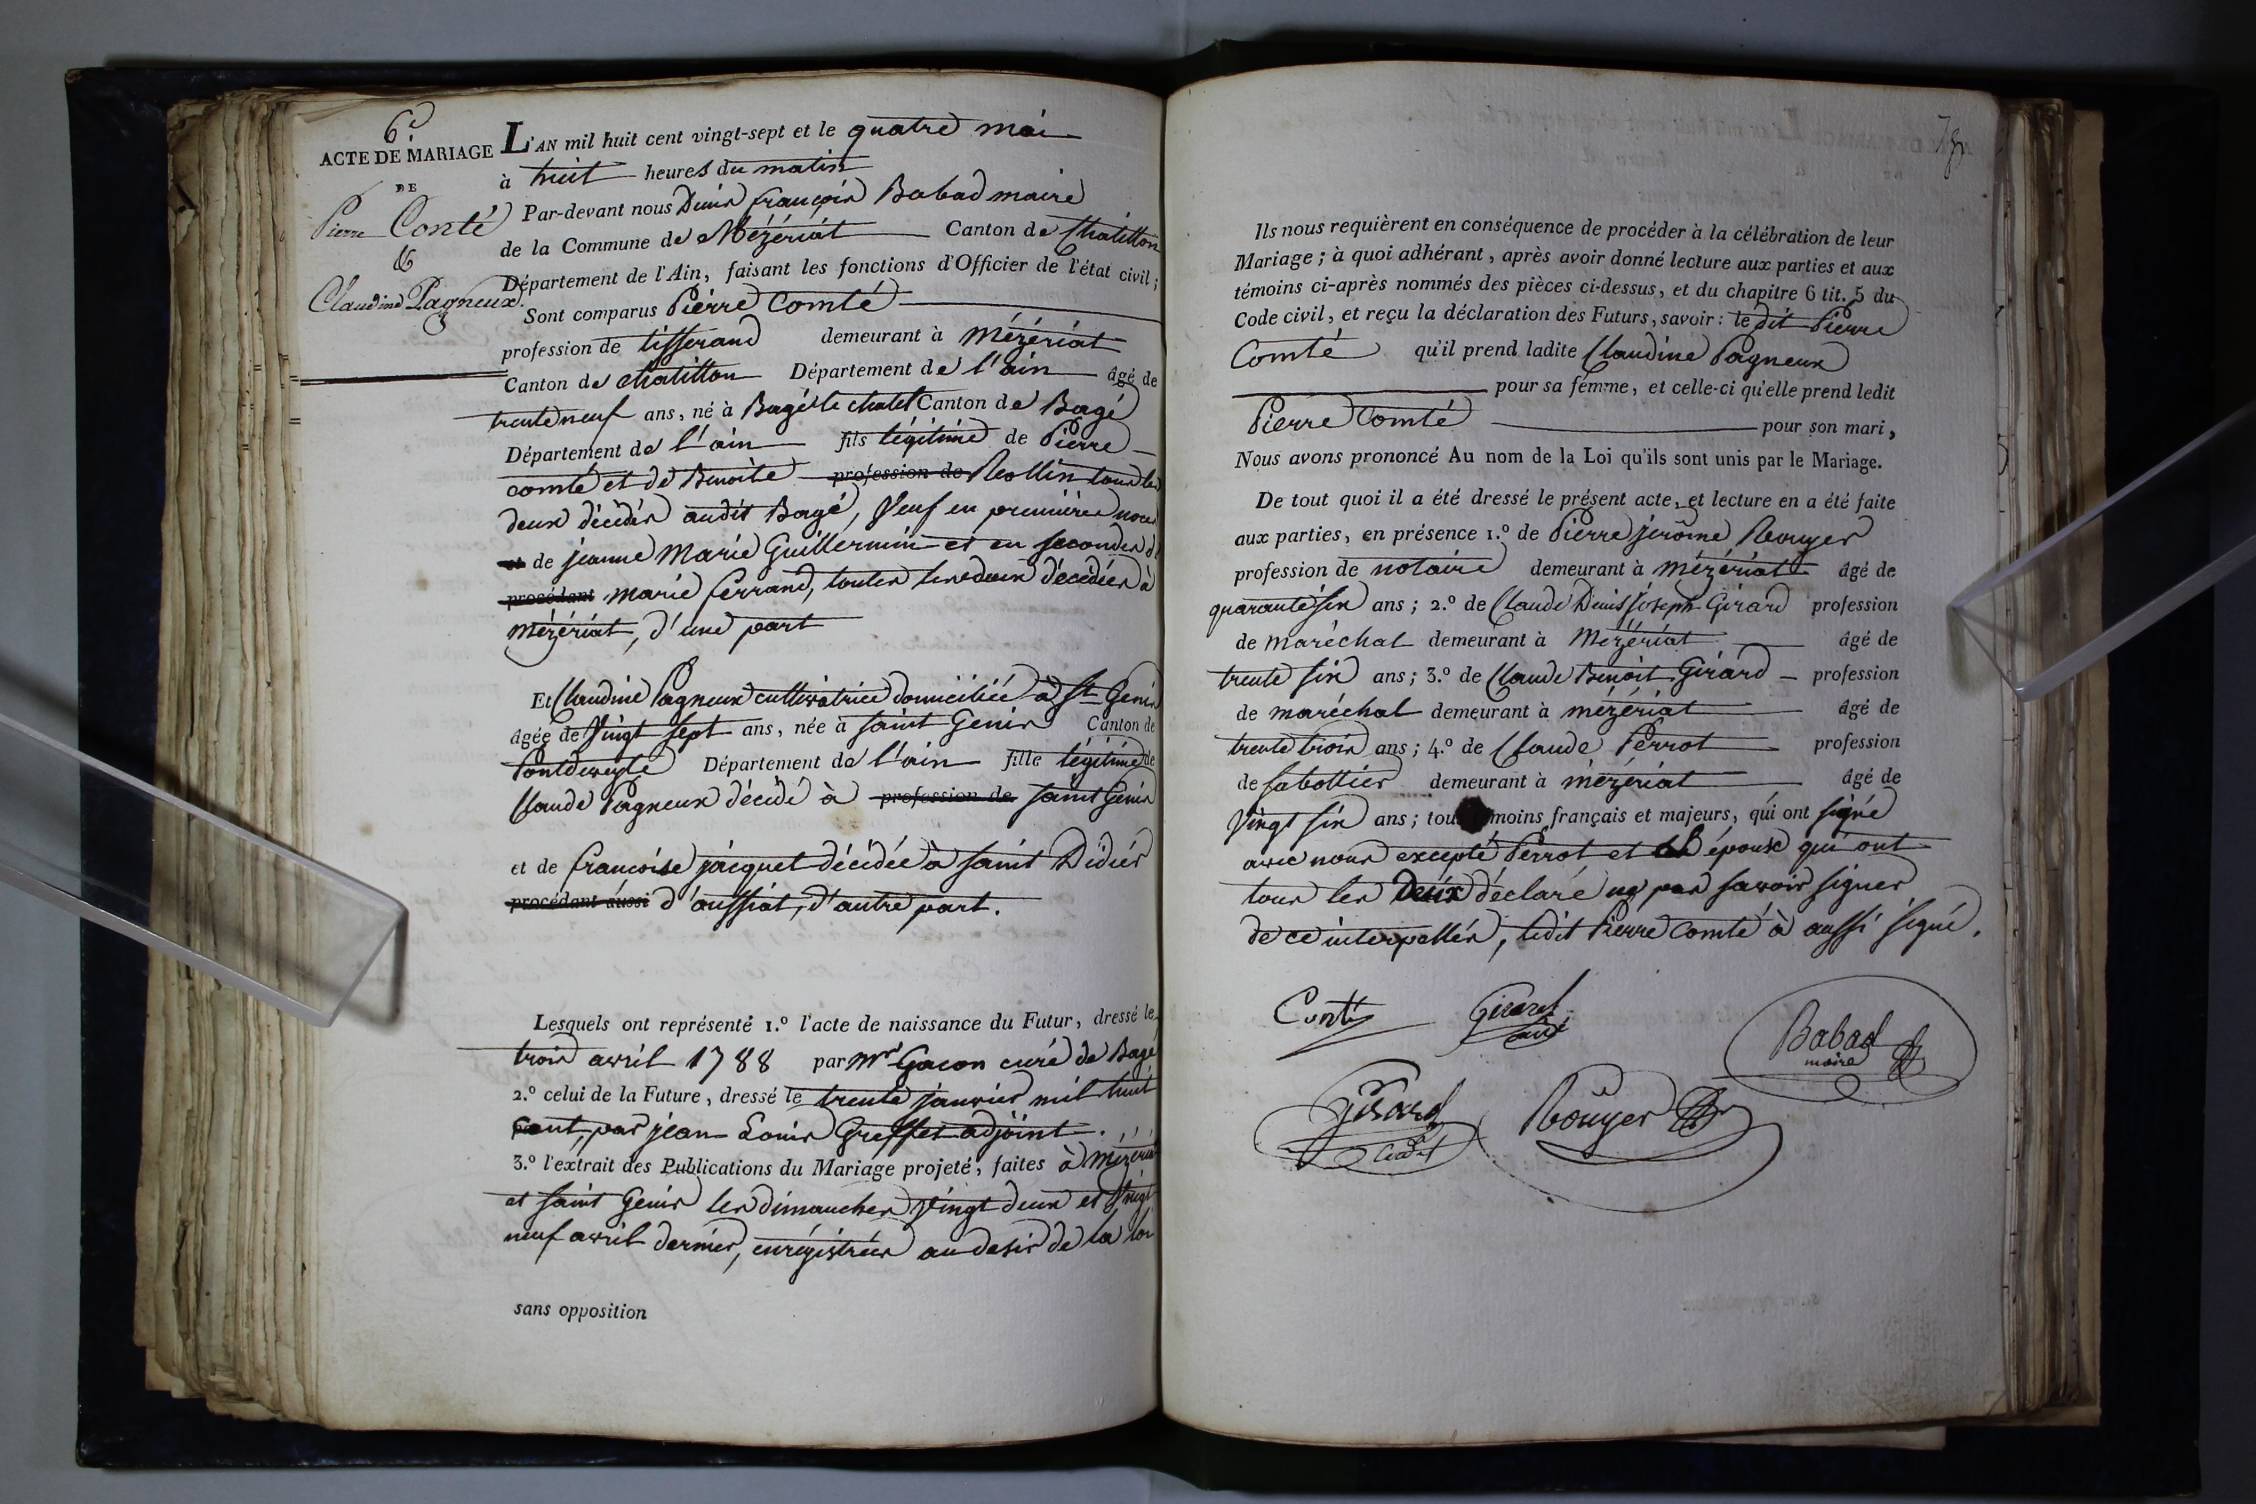 6e
ACTE DE MARIAGE
DE
Pierre Conté
&
Claudine Pagneux.
L'AN mil huit cent vingt-sept et le quatre mai
à huit heures du matin
Par-devant nous Denis françois Babad maire
de la Commune de Mézériat Canton de Chatillon
Département de l'Ain, faisant les fonctions d'Officier de l'état civil ;
Sont comparus Pierre Comté
profession de tisserand demeurant à Mézériat
Canton de chatillon Département de l'ain âgé de
trente neuf ans, né à Bagé le chatel Canton de Bagé
Département de l'ain fils légitime de Pierre
comté et de Benoite profession de Rollin tous les
deux décédés audit Bagé, Veuf en premières noces
et de jeanne Marie Guillermin et en secondes de
procédant marie ferrand, toutes les deux décédées à
mézériat, d'une part
Et Claudine Pagneux cultivatrice domiciliée à St Genis
âgée de Vingt sept ans, née à saint Genis Canton de
Pontdeveyle Département de l'ain fille légitime de
Claude Pagneux décédé à profession de saint Genis
et de francoise jacquet décédée à saint Didier
procédant aussi d'aussiat, d'autre part.
Lesquels ont représenté 1.º l'acte de naissance du Futur, dressé le
trois avril 1788 par Mre Gacon curé de Bagé
2.º celui de la Future, dressé le trente janvier mil huit
cent, par jean Louis Greffet adjoint.
3.º l'extrait des Publications du Mariage projeté, faites à mézériat
et saint Genis les dimanches vingt deux et vingt
neuf avril dernier, enrégistrées au desir de la loi
sans opposition
78
Ils nous requièrent en conséquence de procéder à la célébration de leur
Mariage ; à quoi adhérant, après avoir donné lecture aux parties et aux
témoins ci-après nommés des pièces ci-dessus, et du chapitre 6 tit. 5 du
Code civil, et reçu la déclaration des Futurs, savoir : le dit Pierre
Comté qu'il prend ladite Claudine Pagneux
pour sa femme, et celle-ci qu'elle prend ledit
Pierre Comté pour son mari,
Nous avons prononcé Au nom de la Loi qu'ils sont unis par le Mariage.
De tout quoi il a été dressé le présent acte, et lecture en a été faite
aux parties, en présence 1.º de Pierre jerôme Rouyer
profession de notaire demeurant à mézériat âgé de
quarante six ans ; 2.º de Claude Denis joseph Girard profession
de maréchal demeurant à Mézériat âgé de
trente six ans ; 3.º de Claude Benoit Girard profession
de maréchal demeurant à mézériat âgé de
trente trois ans ; 4.º de Claude Perrot profession
de sabottier demeurant à mézériat âgé de
Vingt six ans ; tous témoins français et majeurs, qui ont signé
avec nous excepté Perrot et épouse qui ont
tous les Deux déclaré ne pas savoir signer
de ce interpellés, ledit Pierre Comté à aussi signé.
Conté
Girard
ainé
Babad
maire
Girard
cadet
Rouyer